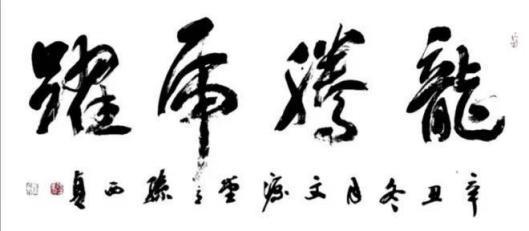 龍騰虎躍
辛丑冬月文源堂主孫西貞